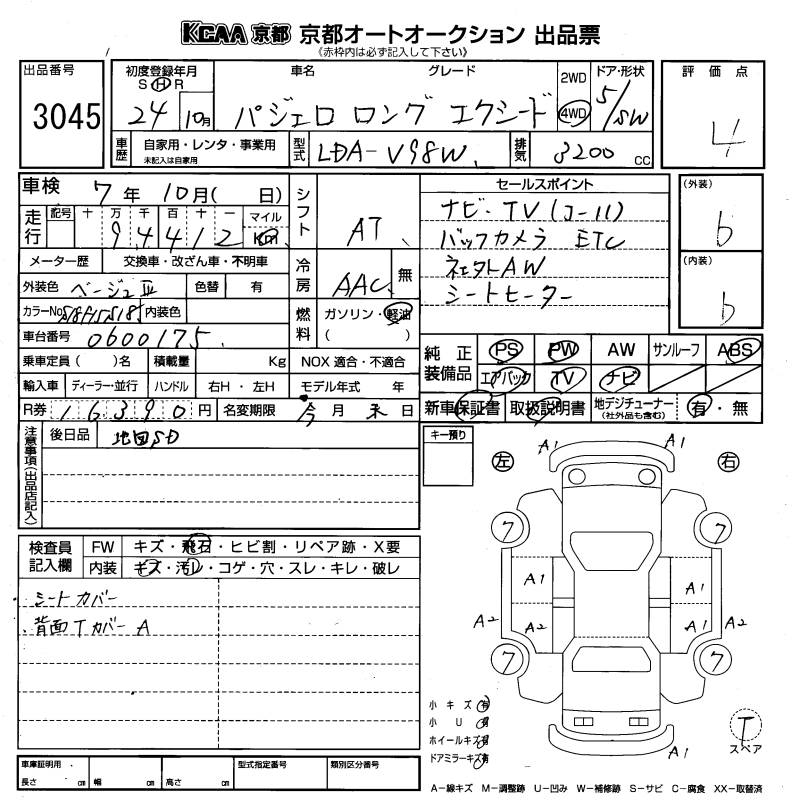 KCAA 京都 京都オートオークション 出品票
《赤枠内は必ず記入して下さい》
出品番号 3045
初度登録年月 S H R 24 10月
車名 グレード パジェロ ロング エクシード
2WD 4WD
ドア・形状 5/SW
評価点 4
車歴 自家用・レンタ・事業用 未記入は自家用
型式 LDA-V98W
排気 3200 CC
車検 7年 10月( 日)
シフト AT
セールスポイント
ナビ・TV(J-11)
バックカメラ ETC
AW
シートヒーター
(外装) b
(内装) b
走行 記号 十 万 千 百 十 一 マイル Km
94412
メーター歴 交換車・改ざん車・不明車
冷房 AAC 無
外装色 ベージュⅢ 色替 有
カラーNo 内装色
燃料 ガソリン・軽油 ( )
車台番号 0600175
乗車定員( )名 積載量 Kg NOX 適合・不適合
輸入車 ディーラー・並行 ハンドル 右H・左H モデル年式 年
R券 16390円 名変期限 今月末日
純正装備品 PS PW AW サンルーフ ABS
エアバック TV ナビ
新車保証書 取扱説明書 地デジチューナー (社外品も含む) 有・無
注意事項(出品店記入) 後日品 地図SD
キー預り
左 右
A1 A1
7 7
A1 A1
A2 A2 A1 A2
7 7
A1
検査員記入欄 FW キズ・飛石・ヒビ割・リペア跡・X要
内装 キズ・汚レ・コゲ・穴・スレ・キレ・破レ
シートカバー
背面Tカバー A
小キズ 有
小U 有
ホイールキズ 有
ドアミラーキズ 有
T スペア
車庫証明用 長さ cm 幅 cm 高さ cm 型式指定番号 類別区分番号
A-線キズ M-調整跡 U-凹み W-補修跡 S-サビ C-腐食 XX-取替済